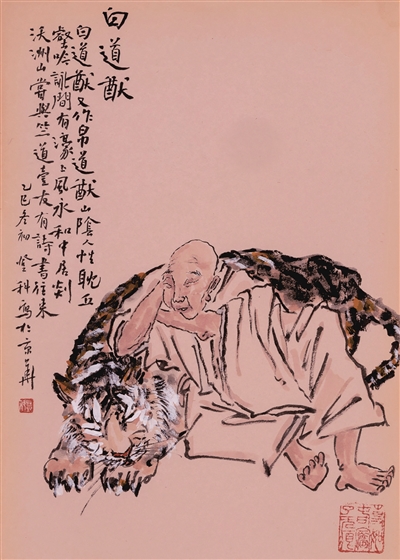 白道猷
白道猷又作帛道猷山陰人性耽丘
壑吟詠間有濠上風永和中居剡
沃洲山嘗與竺道壹友有詩書往來
乙巳冬初登科寫於京華